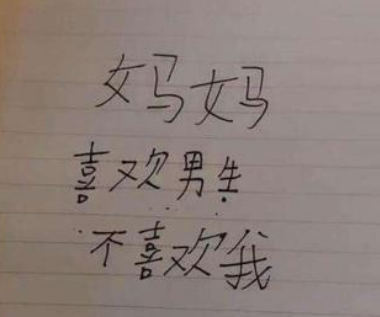 妈妈
喜欢男生
不喜欢我